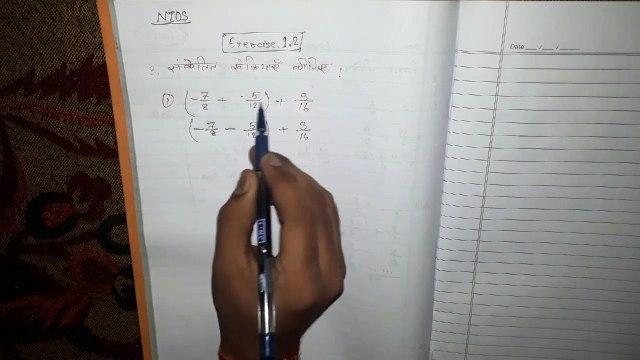 NIOS
Exercise 1.2
2. संकेतित संक्रियाएँ कीजिए :
① (-7/8 + -5/12) + 3/16
(-7/8 - 5/12) + 3/16
Date __/__/__